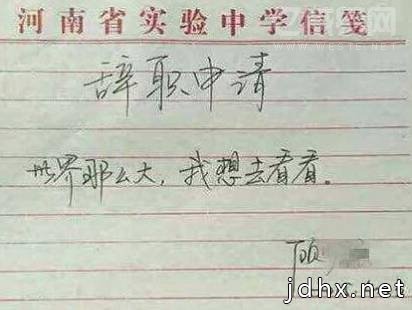 河南省实验中学信笺
WWW.WESTE.NET
辞职申请
世界那么大，我想去看看。
顾
jdhx.net